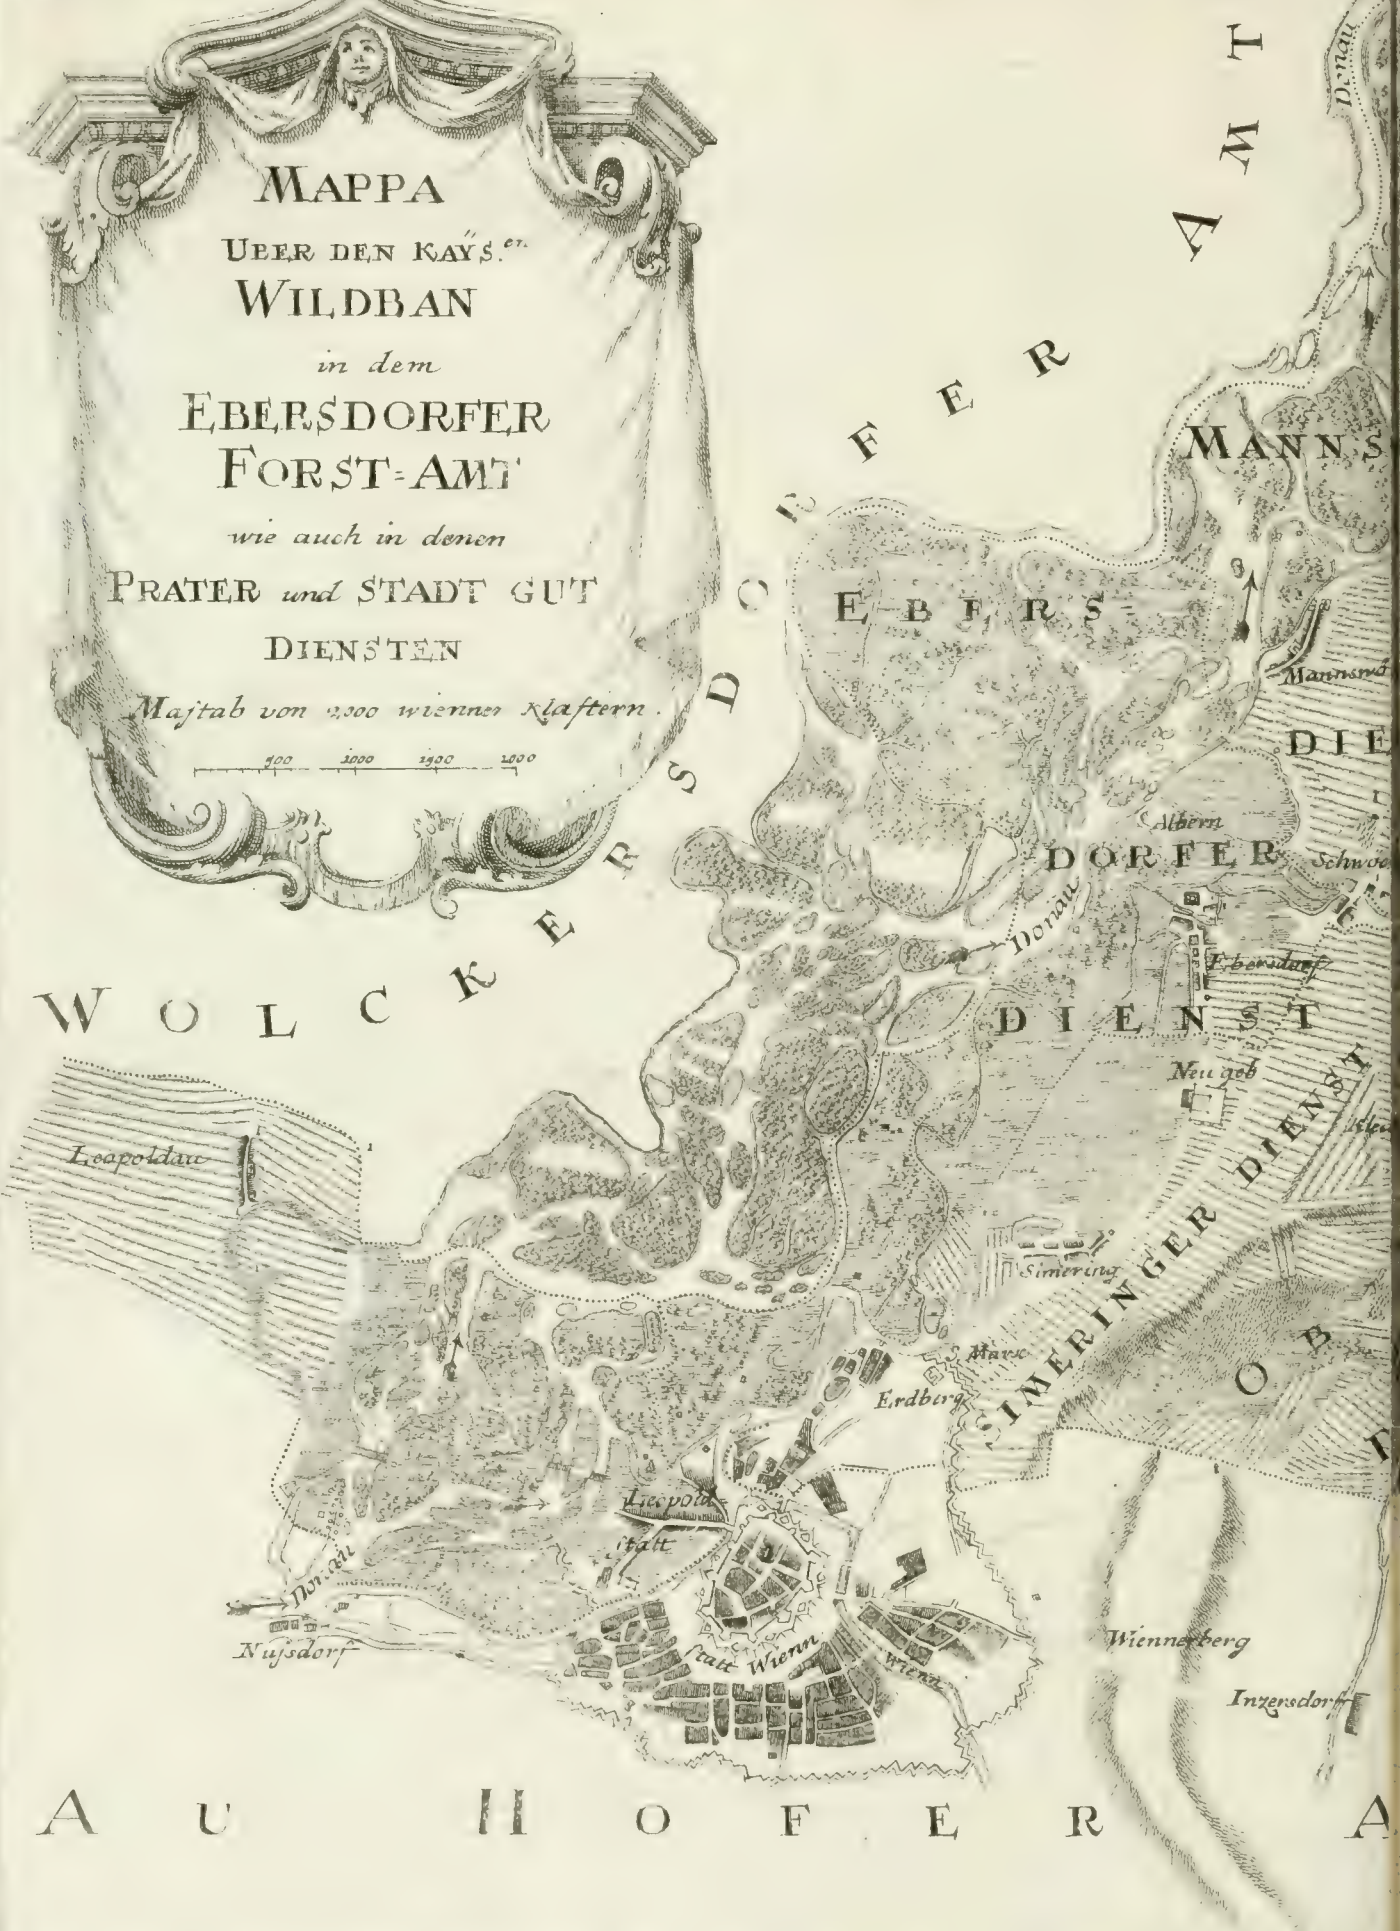 MAPPA
UBER DEN KAŸS.en
WILDBAN
in dem
EBERSDORFER
FORST=AMT
wie auch in denen
PRATER und STADT GUT
DIENSTEN
Maſtab von 2000 wienner Klaftern.
500 1000 1500 2000
WOLCKERSDORFER AMT
Donau
MANNS
EBERS
Mannswö
DIE
Albern
DORFER
Schwo
Donau
Ebersdorf
DIENST
Neugeb
SIMERINGER DIENST
Leopoldau
Simering
OB
S Marx
Erdberg
Leopold
statt
Donau
Nuſsdorf
Statt Wienn
Wienn
Wiennerberg
Inzersdorf
AUHOFER A